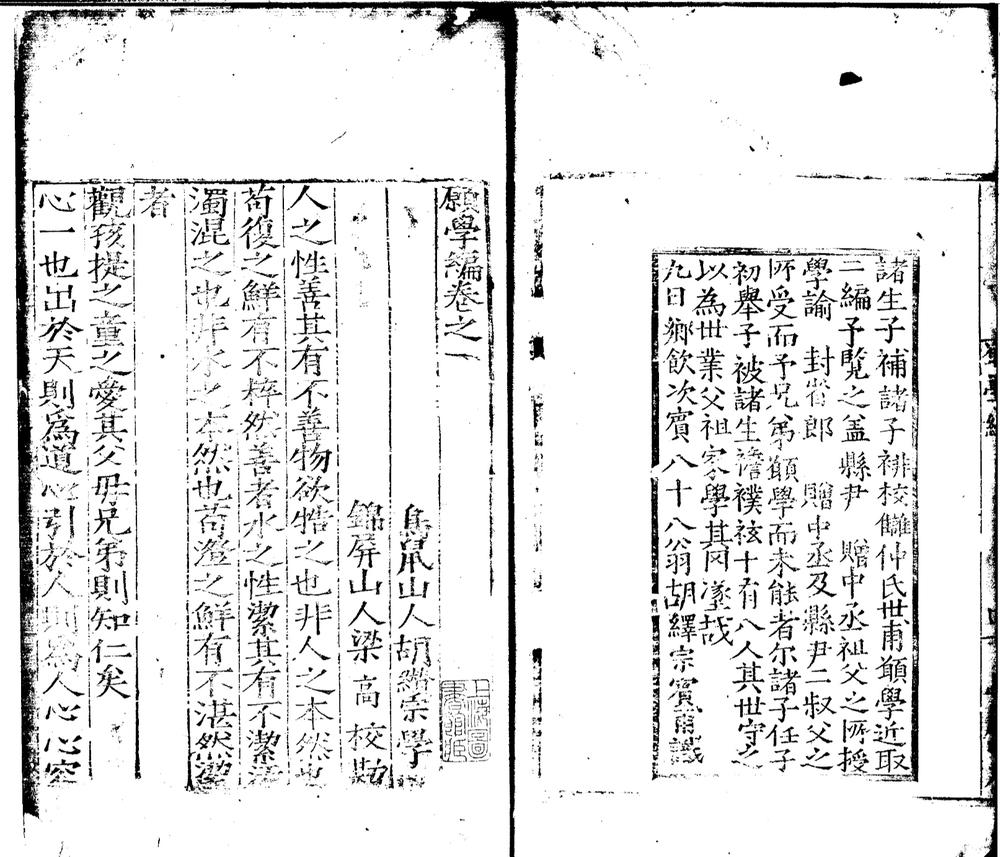 諸生子補諸子裶校讎仲氏世甫顧學近取
二編予覽之盖縣尹 贈中丞祖父之所授
學諭 封省郎 贈中丞及縣尹二叔父之
所受而予兄弟顧學而未能者尔諸子任子
初舉子被諸生襜襆袨十有八人其世守之
以為世業父祖家學其罔墜哉
九日鄉飲次賓八十八翁胡纘宗賓甫識
願學編卷之一
鳥鼠山人胡纘宗學
錦屏山人梁高校勘
人之性善其有不善物欲牿之也非人之本然也
苟復之鮮有不粹然善者水之性潔其有不潔
濁混之也非水之本然也苟澄之鮮有不湛然潔
者
觀孩提之童之愛其父母兄弟則知仁矣
心一也出於天則為道心引於人則為人心心